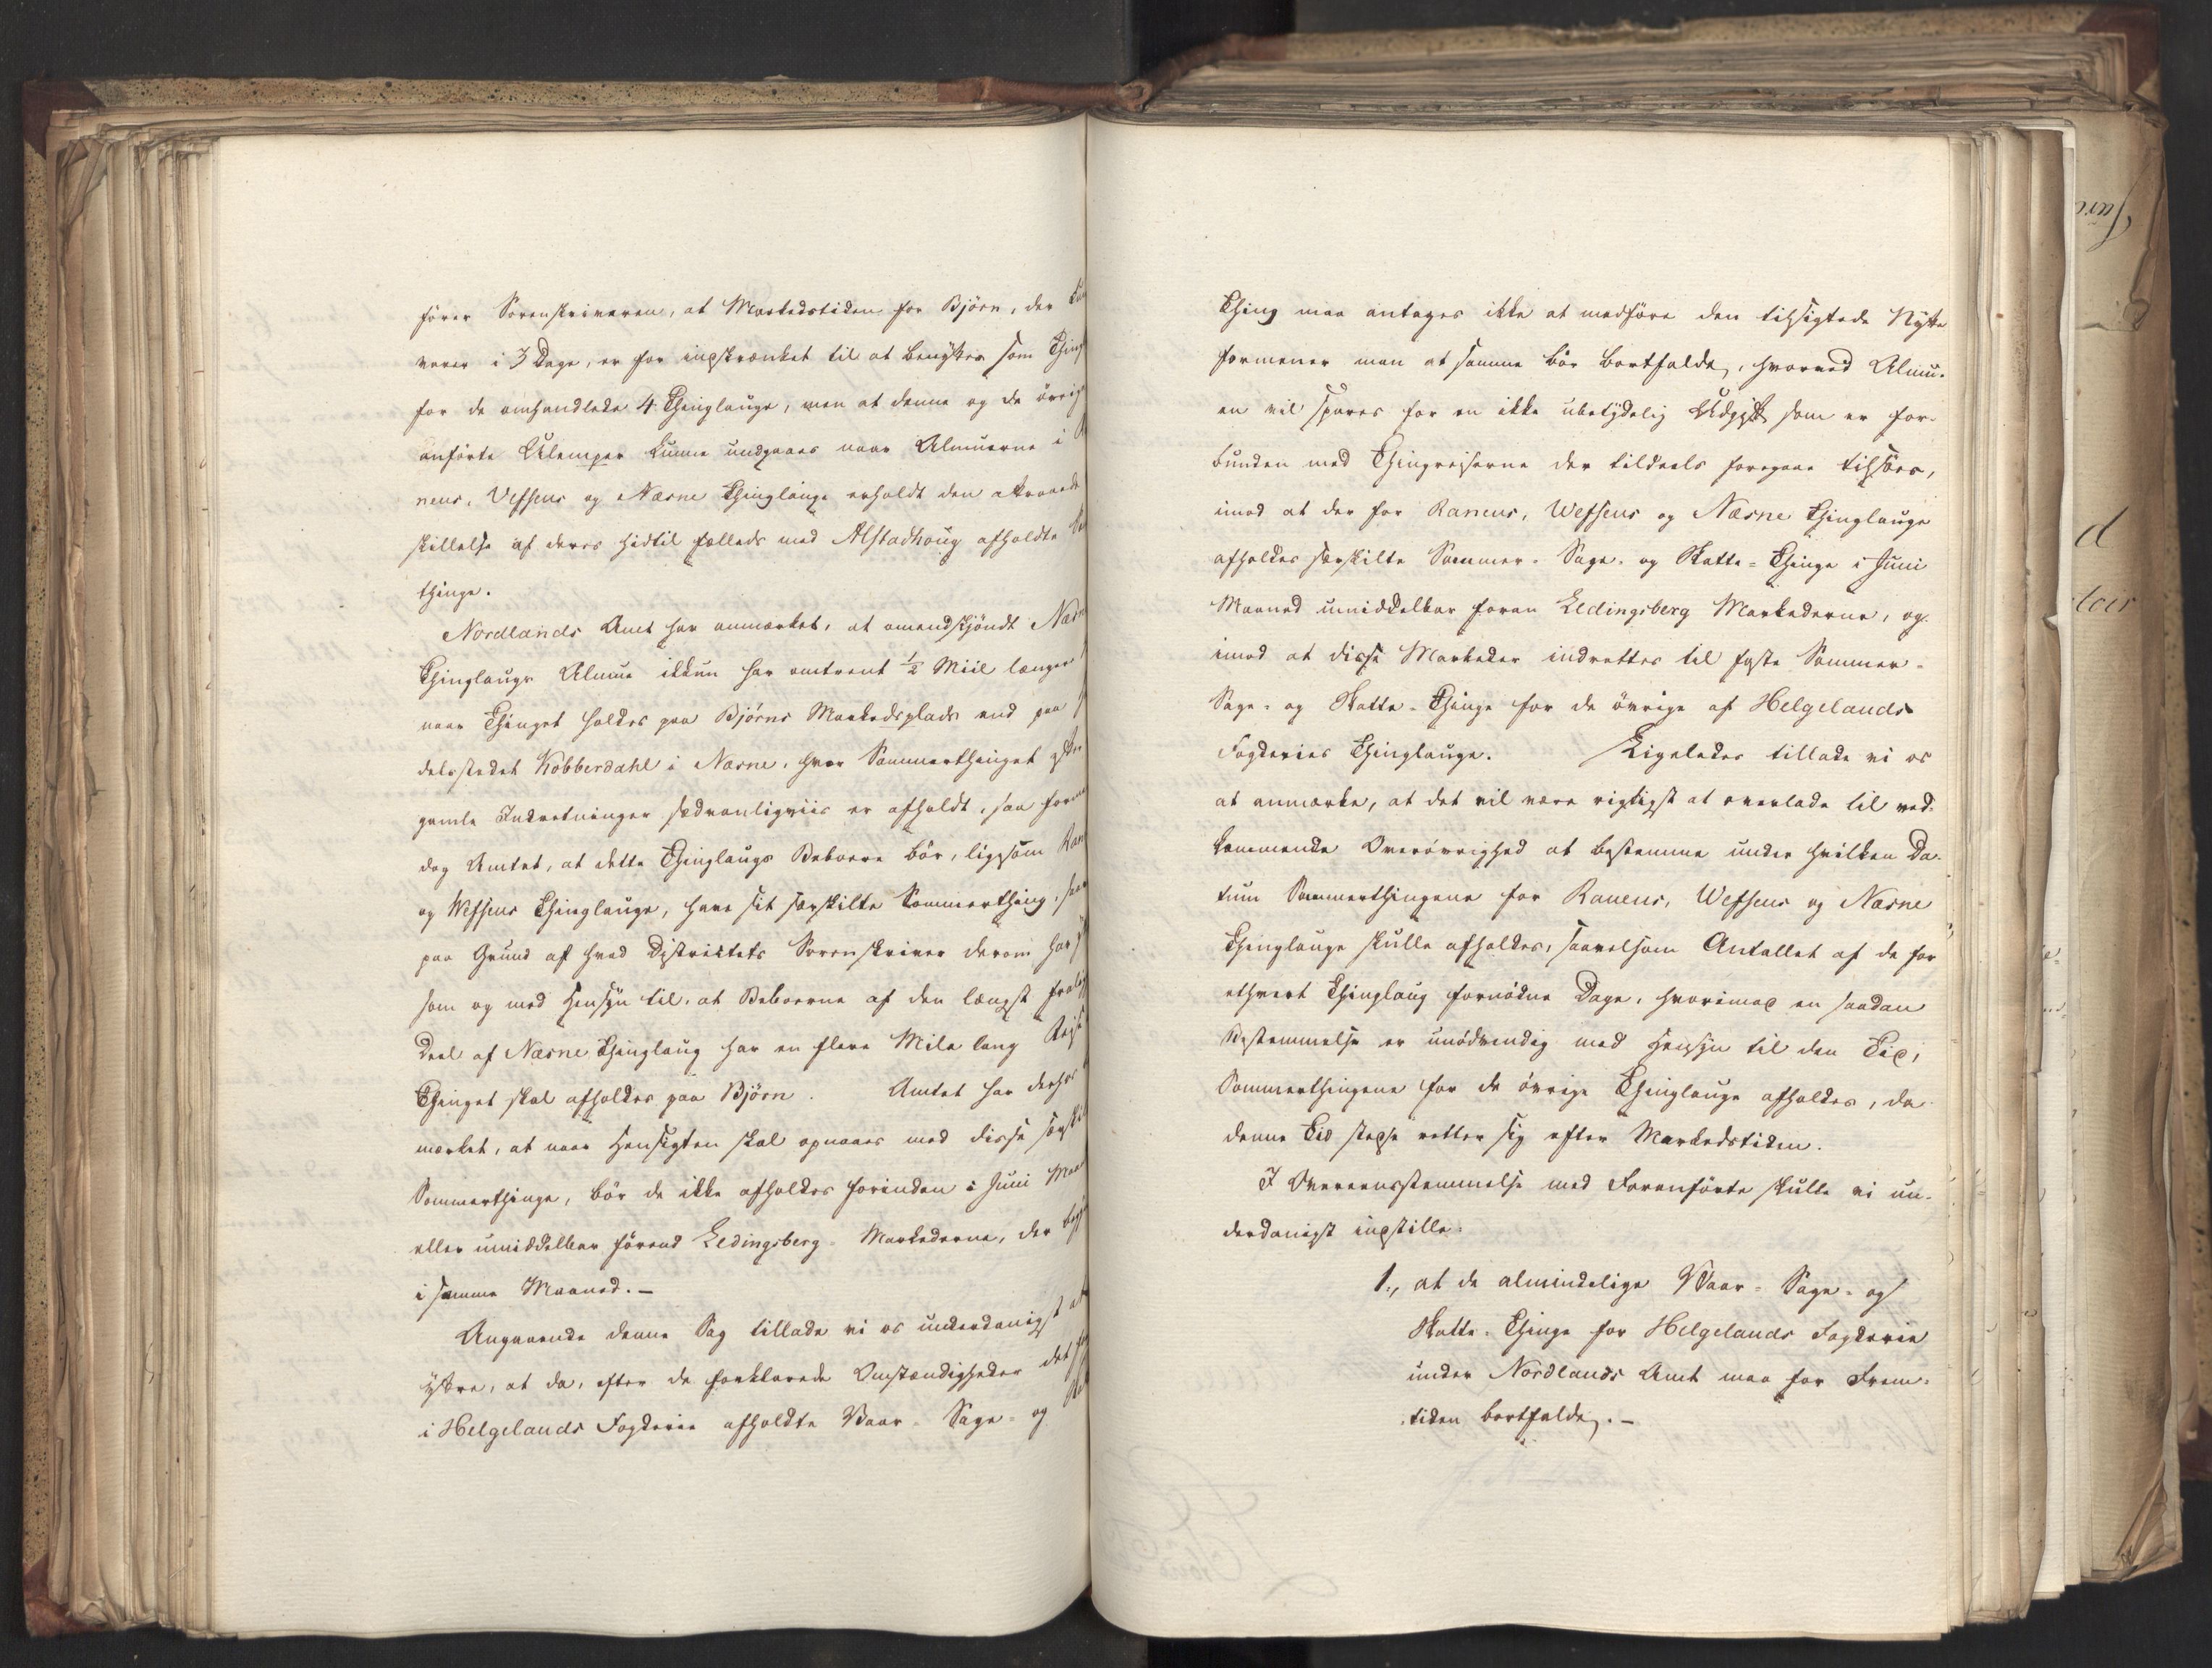 fører Sorenskriveren, at Markedstiden for Bjørn, der
varer i 3 Dage, er for indskrænket til at benyttes som Thing
for de omhandlede 4 Thinglauge, men at denne og de øvrig
anførte Ulemper kunne undgaaes naar Almuerne i
nens, Vefsens og Næsne Thinglauge erholdt den attraaede
skillelse af deres hidtil fælleds med Alstadhoug afholdte
thinge.
Nordlands Amt har anmærket, at omendskjøndt Næsne
Thinglaugs Almue ikkun har omtrent ½ Miil længer
naar Thinget holdes paa Bjørns Markedsplads end paa
delsstedet Kobberdahl i Næsne, hvor Sommerthinget efter
gamle Indretninger sædvanligviis er afholdt, saa formener
dog Amtet, at dette Thinglaugs Beboere bør, ligesom Ran
og Wefsens Thinglauge, have sit særskilte Sommerthing, saa
paa Grund af hvad Districtets Sorenskriver derom har
som og med Hensyn til, at Beboerne af den længst fralig
Deel af Næsne Thinglaug har en flere Mile lang Reise
Thinget skal afholdes paa Bjørn. Amtet har derhos
mærket, at naar Hensigten skal opnaaes med disse særskil
Sommerthinge, bør de ikke afholdes forinden i Juni Maa
eller umiddelbar førend Tedingsberg Markederne, der begge
i samme Maaned.—
Angaaende denne Sag tillade vi os underdanigst at
yttre, at da, efter de forklarede Omstændigheder det
i Helgelands Fogderie afholdte Vaar- Sage- og
Thing maa antages ikke at medføre den tilsigtede Nytte
formener man at samme bør bortfalde, hvorved Almu-
en vil spares for en ikke ubetydelig Udgift som er for-
bunden med Thingreiserne der tildeels foregaae tilsøes,
imod at der for Ranens, Wefsens og Næsne Thinglauge
afholdes særskilte Sommer- Sage- og Skatte-Thinge i Juni
Maaned umiddelbar foran Tedingsberg Markederne, og
imod at disse Markeder indrettes til faste Sommer-
Sage- og Skatte-Thinge for de øvrige af Helgelands
Fogderies Thinglauge. Ligeledes tillade vi os
at anmærke, at det vil være rigtigst at overlade til ved-
kommende Overøvrighed at bestemme under hvilken Da-
tum Sommerthingene for Ranens, Wefsens og Næsne
Thinglauge skulle afholdes, saavelsom Antallet af de for
ethvert Thinglaug fornødne Dage, hvorimod en saadan
Bestemmelse er unødvendig med Hensyn til den Tid,
Sommerthingene for de øvrige Thinglauge afholdes, da
denne Tid stedse retter sig efter Markedstiden.
I Overeensstemmelse med Foranførte skulle vi un-
derdanigst indstille:
1., at de almindelige Vaar- Sage- og
Skatte-Thinge for Helgelands Fogderie
under Nordlands Amt maa for Frem-
tiden bortfalde.—